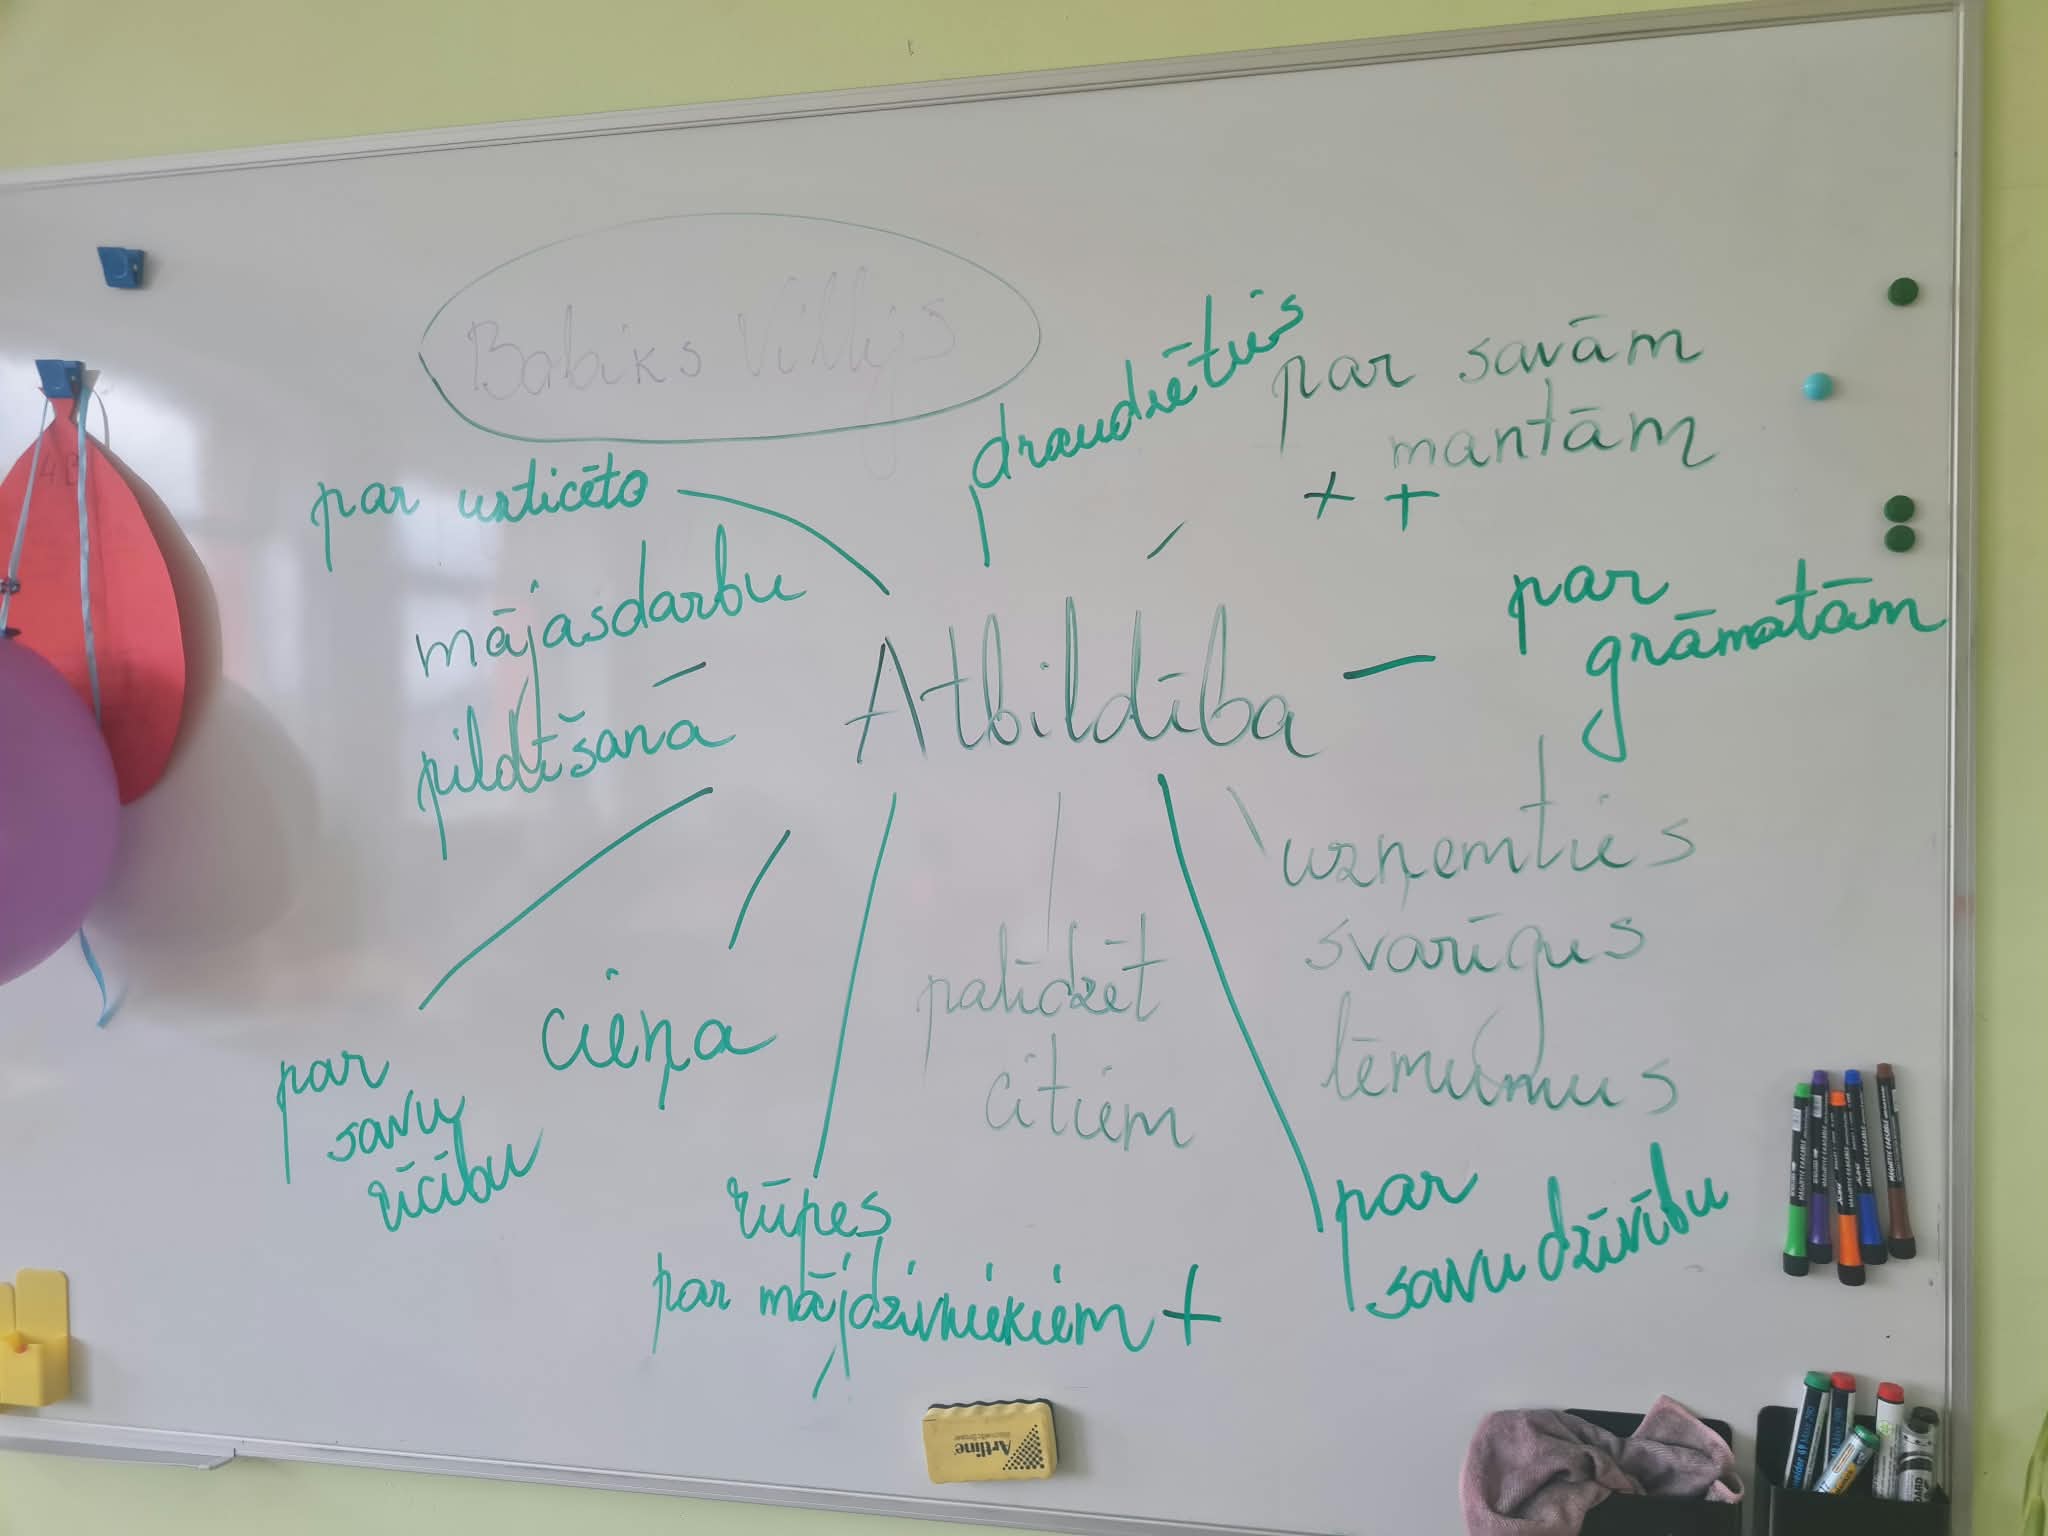 Babiks Villijs
draudzēties
par savām
mantām
+ +
par uzticēto
mājasdarbu
pildīšanā
Atbildība
par
grāmatām
uzņemties
svarīgus
lēmumus
palīdzēt
citiem
cieņa
par
savu
rīcību
rūpes
par mājdzīvniekiem +
par
savu dzīvību
Artline